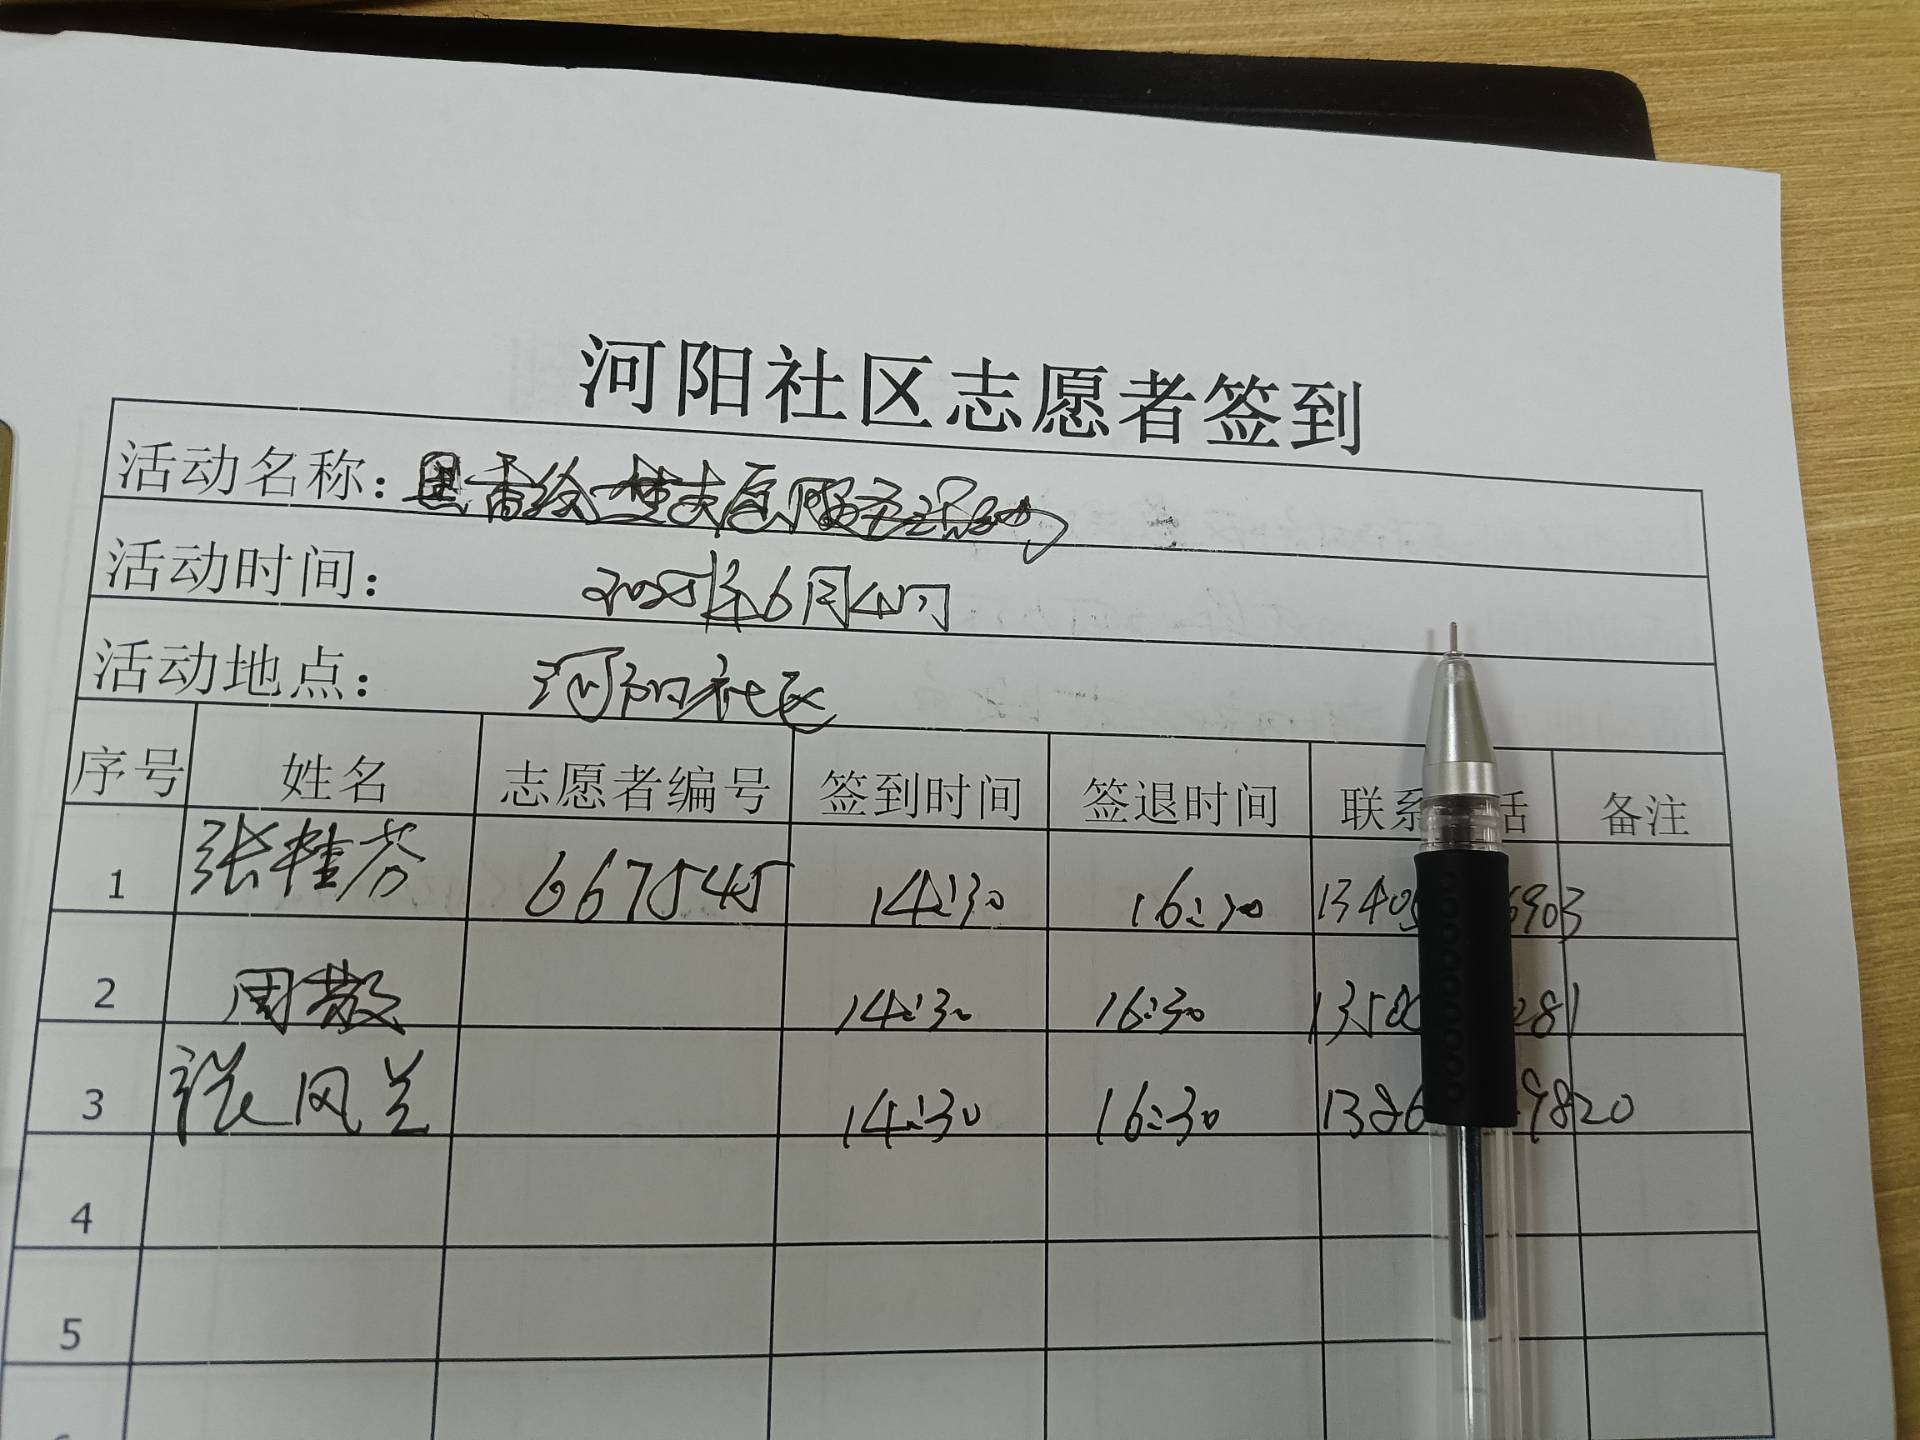 河阳社区志愿者签到
活动名称：服务活动
活动时间： 2025年6月4日
活动地点： 河阳社区
序号 姓名 志愿者编号 签到时间 签退时间 联系 话 备注
1 张桂芬 667545 14:30 16:30 1340 6903
2 周 14:30 16:30 135 281
3 张风兰 14:30 16:30 1386 9820
4
5